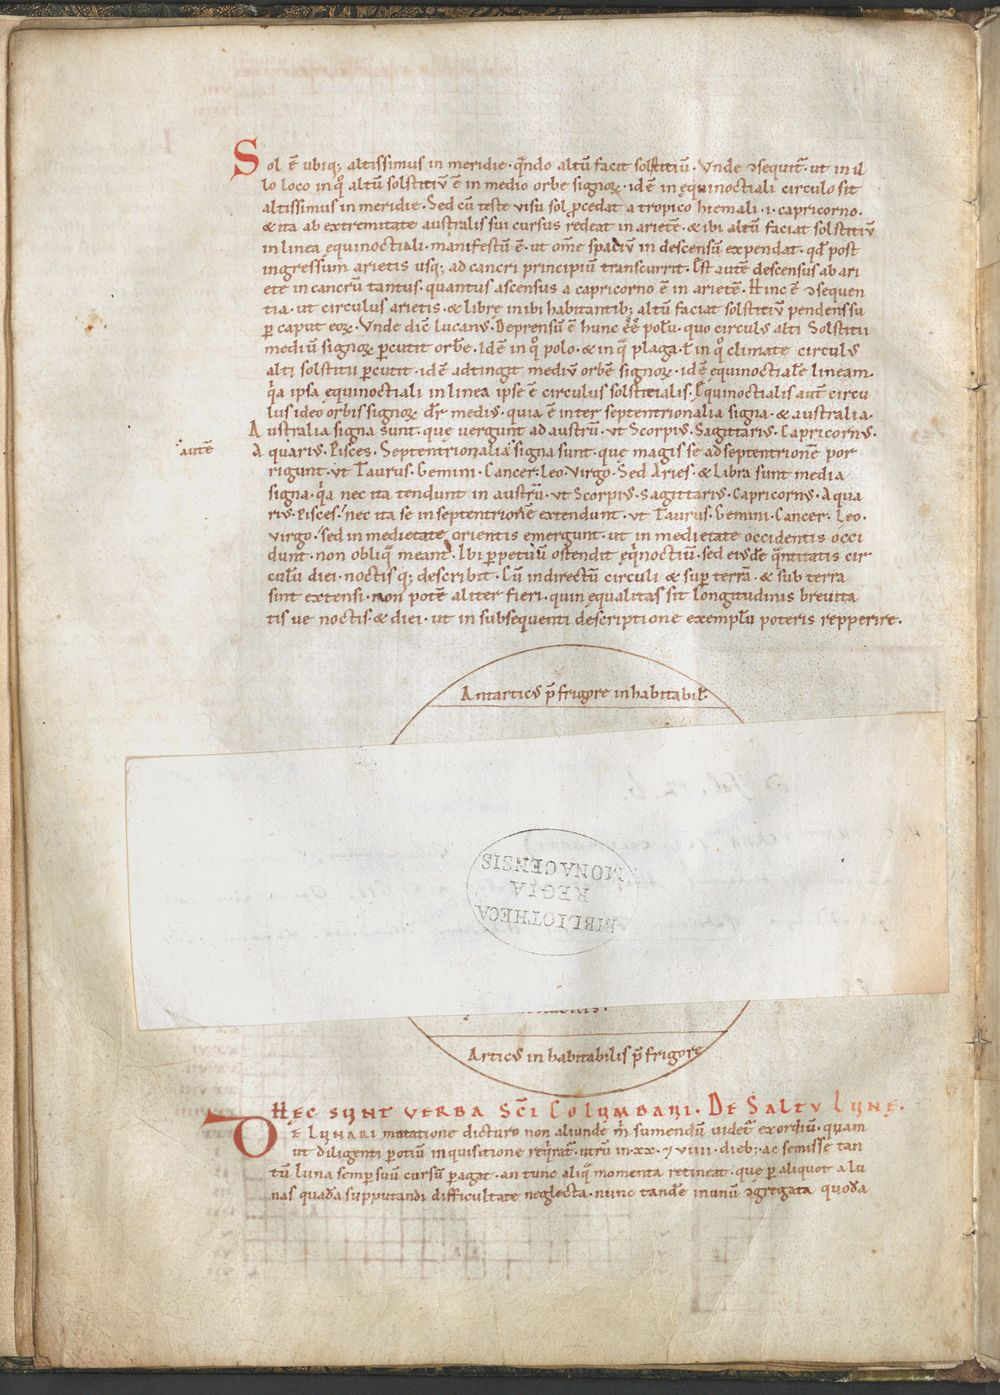 Sol ē ubiq; altissimus in meridie · q̄ndo altū facit solstitiū · Vnde ↄsequit̄ · ut in il
lo loco in q̊ altū solstitiū ē in medio orbe signoꝝ · idē in equinoctiali circulo sit
altissimus in meridie · Sed cū teste visu sol ꝓcedat a tropico hiemali · i · capricorno ·
& ita ab extremitate australis sui cursus redeat in arietē · & ibi altū faciat solstitiū
in linea equinoctiali · manifestū ē · ut om̄e spatiū in descensū expendat · qd̄ post
ingressum arietis usq; ad cancri principiū transcurrit · Est autē descensus ab ari
ete in cancrū tantus · quantus ascensus a capricorno ē in arietē · Hinc ē ↄsequen
tia · ut circulus arietis · & librę inibi habitantib; altū faciat solstitiū pendens su
ꝑ caput eoꝝ · Vnde dic̄ lucanꝰ · Deprensū ē hunc eē̊ polū · quo circulꝰ alti Solstitii
mediū signoꝝ ꝑcutit orbē · Idē in q̊ polo · & in q̄ plaga · ł in q̊ climate circulꝰ
alti solstitii ꝑcutit · idē adtingit mediū orbē signoꝝ · idē equinoctialē lineam ·
q̄a ipsa equinoctiali in linea ipse ē circulus solstitialis · Equinoctialis aut̄ circu
lus ideo orbis signoꝝ dr̄ mediꝰ · quia ē inter septentrionalia signa · & australia ·
Australia signa sunt · quę vergunt ad austrū · ut Scorpiꝰ · Sagittariꝰ · Capricornꝰ ·
autē
Aquariꝰ · Pisces · Septentrionalia signa sunt · que magis se ad septentrionē por
rigunt · ut Taurus · Gemini · Cancer · Leo · Virgo · Sed Aries · & Libra sunt media
signa · q̄a nec ita tendunt in austrū · ut Scorpiꝰ · Sagittariꝰ · Capricornꝰ · Aqua
riꝰ · Pisces · nec ita se in septentrionē extendunt · ut Taurus · Gemini · Cancer · Leo ·
Virgo · sed in medietate orientis emergunt · ut in medietate occidentis occi
dunt · non obliq̄ meant · Ibi ꝑpetuū ostendit eq̄noctiū · sed eiꝰdē q̄ntitatis cir
culū diei · noctis q; describit · Cū in directū circuli & suꝑ terrā · & sub terra
sint extensi · non potē aliter fieri · quin equalitas sit longitudinis brevita
tis ve noctis · & diei · ut in subsequenti descriptione exemplū poteris repperire ·
Antarticꝰ p̄ frigore inhabitabił
BIBLIOTHECA
REGIA
MONACENSIS
Articꝰ in habitabilis p̄ frigore
HEC SUNT VERBA SC̄I COLUMBANI · DE SALTV LUNE ·
DE LUNARI mutatione dicturo non aliunde m̄ sumendū videt̄ exordiū · quam
ut diligenti potiū inquisitione req̄rat̄ · utrū in · xx · ⁊ viiii · dieb; ac semisse tan
tū luna semꝑ suū cursū ꝑagat · an tunc aliq̄ momenta retineat · quę ꝑ aliquot a lu
nas quadā supputandi difficultate neglecta · nunc tandē in unū ↄgregata quodā